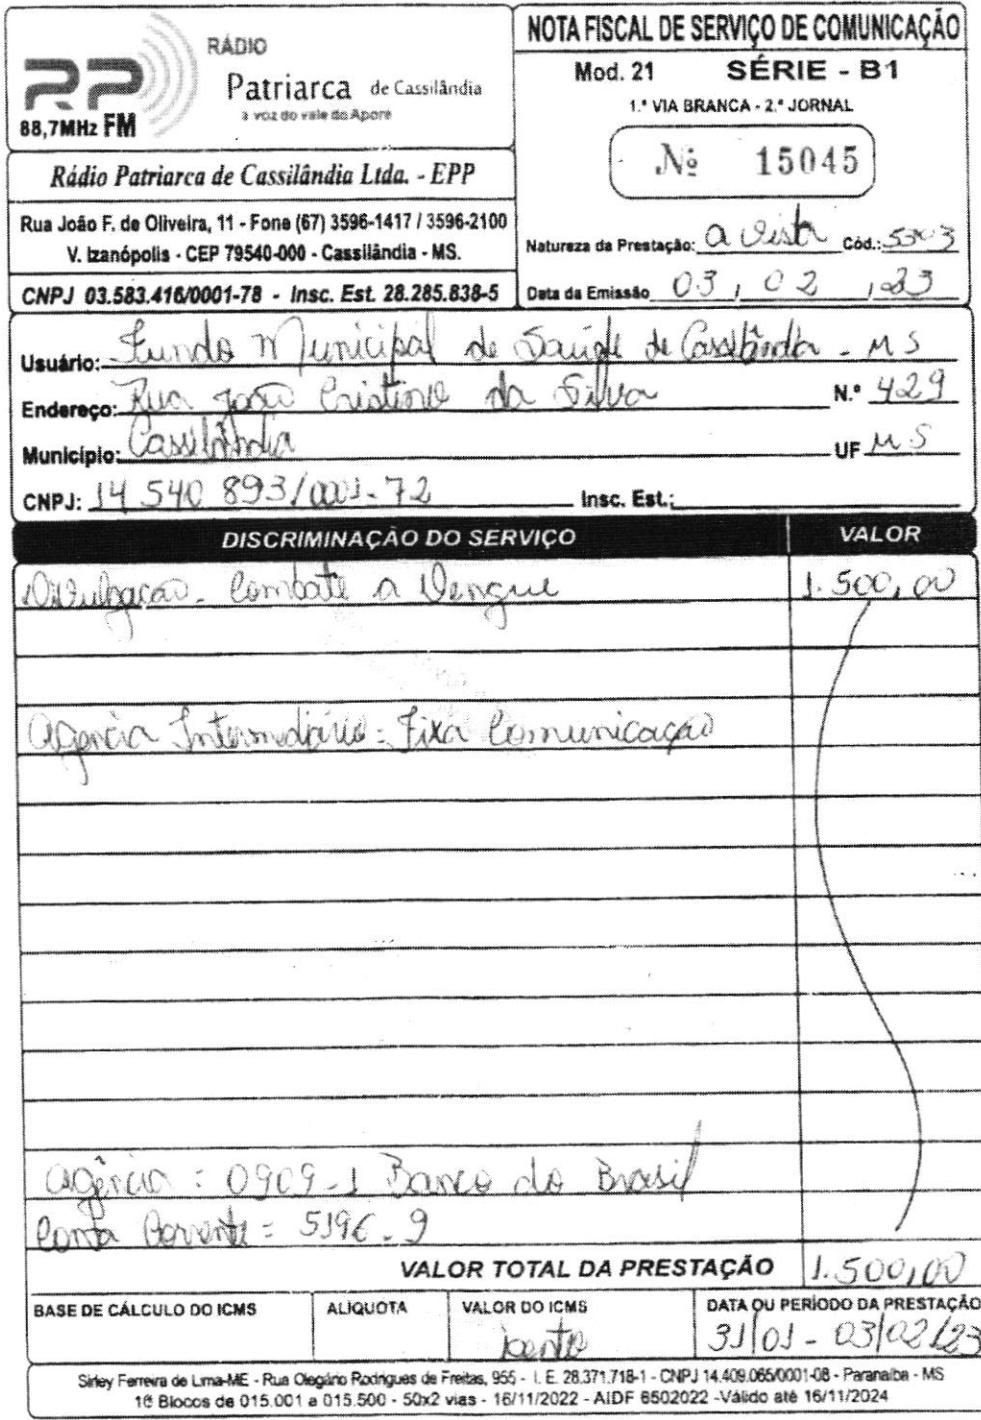 RÁDIO
Patriarca de Cassilândia
a voz do vale do Aporé
RP
88,7MHz FM
Rádio Patriarca de Cassilândia Ltda. - EPP
Rua João F. de Oliveira, 11 - Fone (67) 3596-1417 / 3596-2100
V. Izanópolis - CEP 79540-000 - Cassilândia - MS.
CNPJ 03.583.416/0001-78 - Insc. Est. 28.285.838-5
NOTA FISCAL DE SERVIÇO DE COMUNICAÇÃO
Mod. 21 SÉRIE - B1
1.ª VIA BRANCA - 2.ª JORNAL
Nº 15045
Natureza da Prestação: a vista Cód.: 5303
Data da Emissão 03 / 02 / 23
Usuário: Fundo Municipal de Saúde de Cassilândia - MS
Endereço: Rua João Cristino da Silva N.º 429
Município: Cassilândia UF MS
CNPJ: 14 540 893/0001-72 Insc. Est.:
DISCRIMINAÇÃO DO SERVIÇO VALOR
Divulgação - Combate a Dengue 1.500,00
Agencia Intermediário = Fixa Comunicação
agência : 0909-1 Banco do Brasil
Conta Corrente = 5196-9
VALOR TOTAL DA PRESTAÇÃO 1.500,00
BASE DE CÁLCULO DO ICMS ALIQUOTA VALOR DO ICMS DATA OU PERÍODO DA PRESTAÇÃO
isento 31/01 - 03/02/23
Sirley Ferreira de Lima-ME - Rua Olegário Rodrigues de Freitas, 955 - I. E. 28.371.718-1 - CNPJ 14.409.065/0001-08 - Paranaíba - MS
10 Blocos de 015.001 a 015.500 - 50x2 vias - 16/11/2022 - AIDF 6502022 - Válido até 16/11/2024